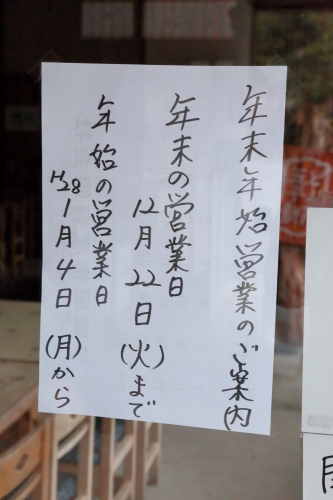 年末年始営業のご案内
年末の営業日
12月22日(火)まで
年始の営業日
H28 1月4日(月)から